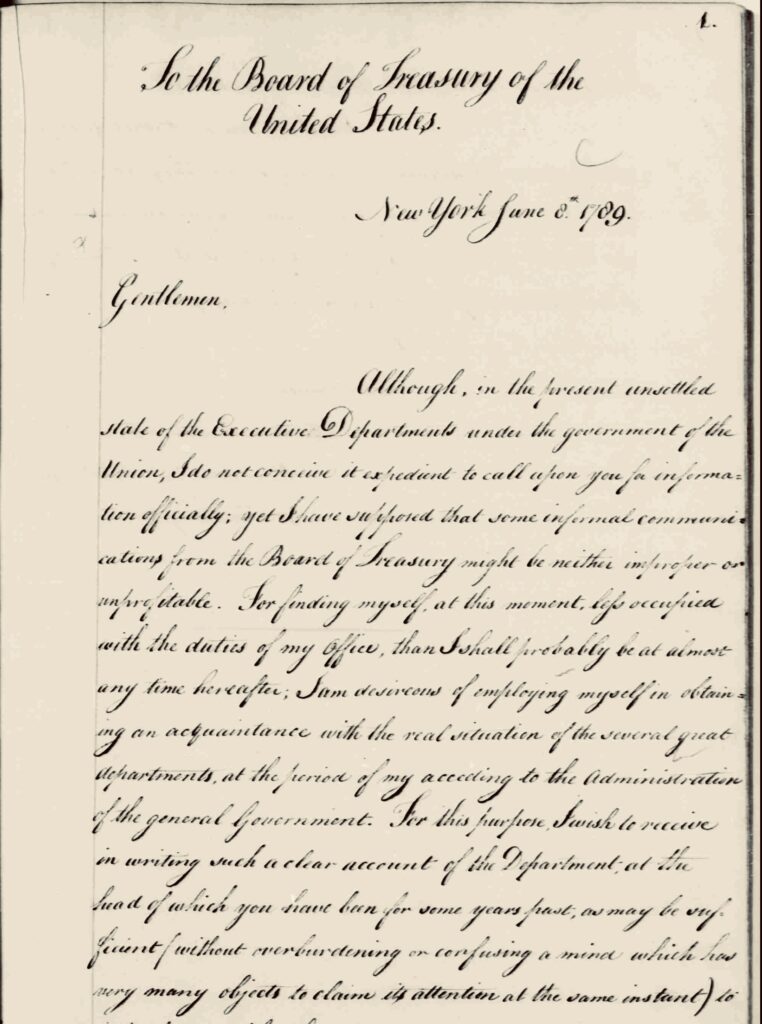 1.
To the Board of Treasury of the
United States.
New York June 8th. 1789.
Gentlemen,
Although, in the present unsettled
state of the Executive Departments under the government of the
Union, I do not conceive it expedient to call upon you for informa=
tion officially; yet I have supposed that some informal communi=
cations from the Board of Treasury might be neither improper or
unprofitable. For finding myself, at this moment, less occupied
with the duties of my Office, than I shall probably be at almost
any time hereafter; I am desireous of employing myself in obtain=
ing an acquaintance with the real situation of the several great
departments, at the period of my acceding to the Administration
of the general Government. For this purpose, I wish to receive
in writing such a clear account of the Department, at the
head of which you have been for some years past, as may be suf-
ficient (without overburdening or confusing a mind which has
very many objects to claim its attention at the same instant) to